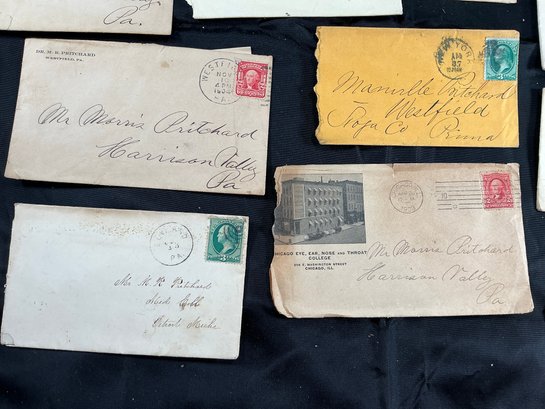 Pa.
DR. M. R. PRITCHARD
WESTFIELD, PA.
NOV
Mr Morris Pritchard
Harrison Valley
Pa
NEW YORK
Manville Pritchard
Westfield
Tioga Co Penna
CHICAGO EYE, EAR, NOSE AND THROAT
COLLEGE
WASHINGTON STREET
CHICAGO, ILL
Mr Morris Pritchard
Harrison Valley
Pa
PA
Mr M. R. Pritchard
Med Coll
Detroit Mich